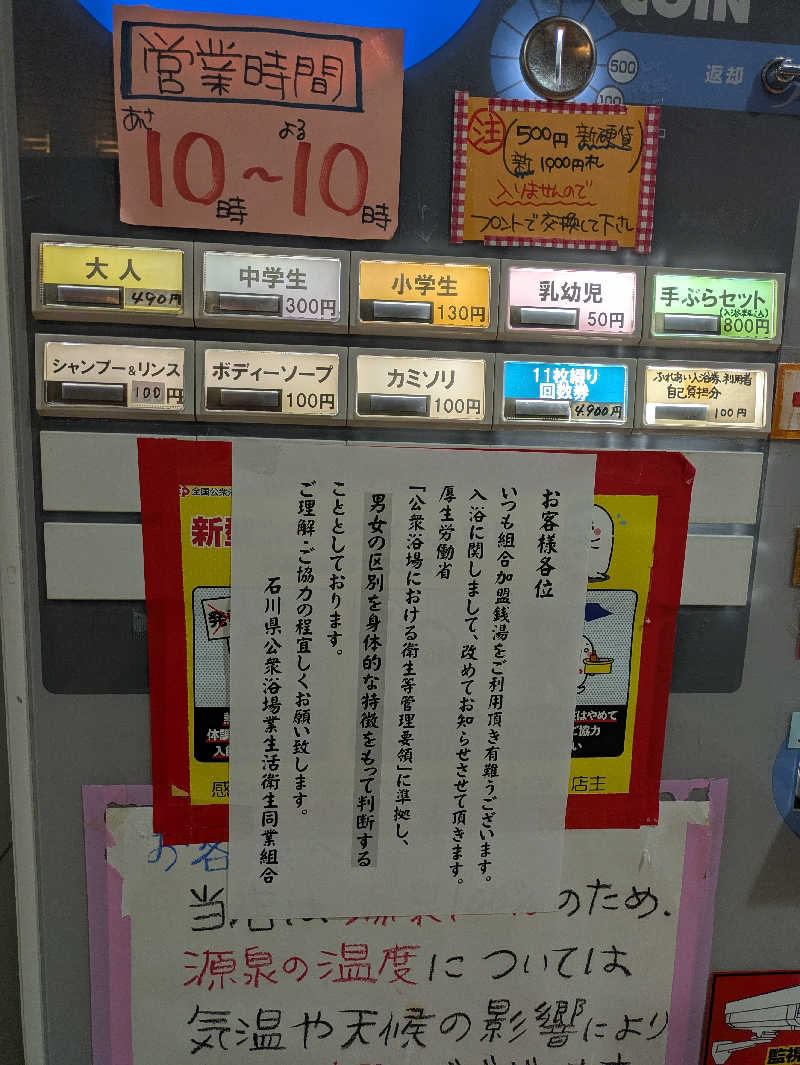 COIN
500
100
返却
営業時間
あさ よる
10時~10時
注 500円 新硬貨
新1000円札
入りませんので
フロントで交換して下さい
大人 490円
中学生 300円
小学生 130円
乳幼児 50円
手ぶらセット
(入浴料込)
800円
シャンプー&リンス 100円
ボディーソープ 100円
カミソリ 100円
11枚綴り
回数券
4,900円
ふれあい入浴券利用者
自己負担分
100円
全国公衆
新
お客様各位
いつも組合加盟銭湯をご利用頂き有難うございます。
入浴に関しまして、改めてお知らせさせて頂きます。
厚生労働省
「公衆浴場における衛生等管理要領」に準拠し、
男女の区別を身体的な特徴をもって判断する
こととしております。
ご理解・ご協力の程宜しくお願い致します。
石川県公衆浴場業生活衛生同業組合
発
体調
入
はやめて
ご協力
い
感
店主
お客
当店は
のため、
源泉の温度については
気温や天候の影響により
監視